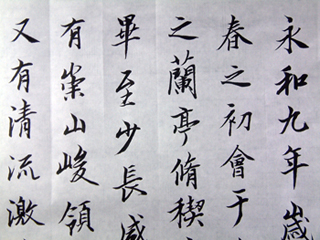 永和九年歲
春之初會于
之蘭亭脩稧
畢至少長咸
有崇山峻領
又有清流激